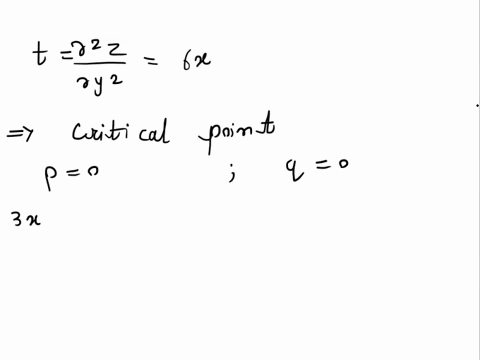 t = ∂²z/∂y² = 6x
⇒ Critical point
p = 0 ; q = 0
3x